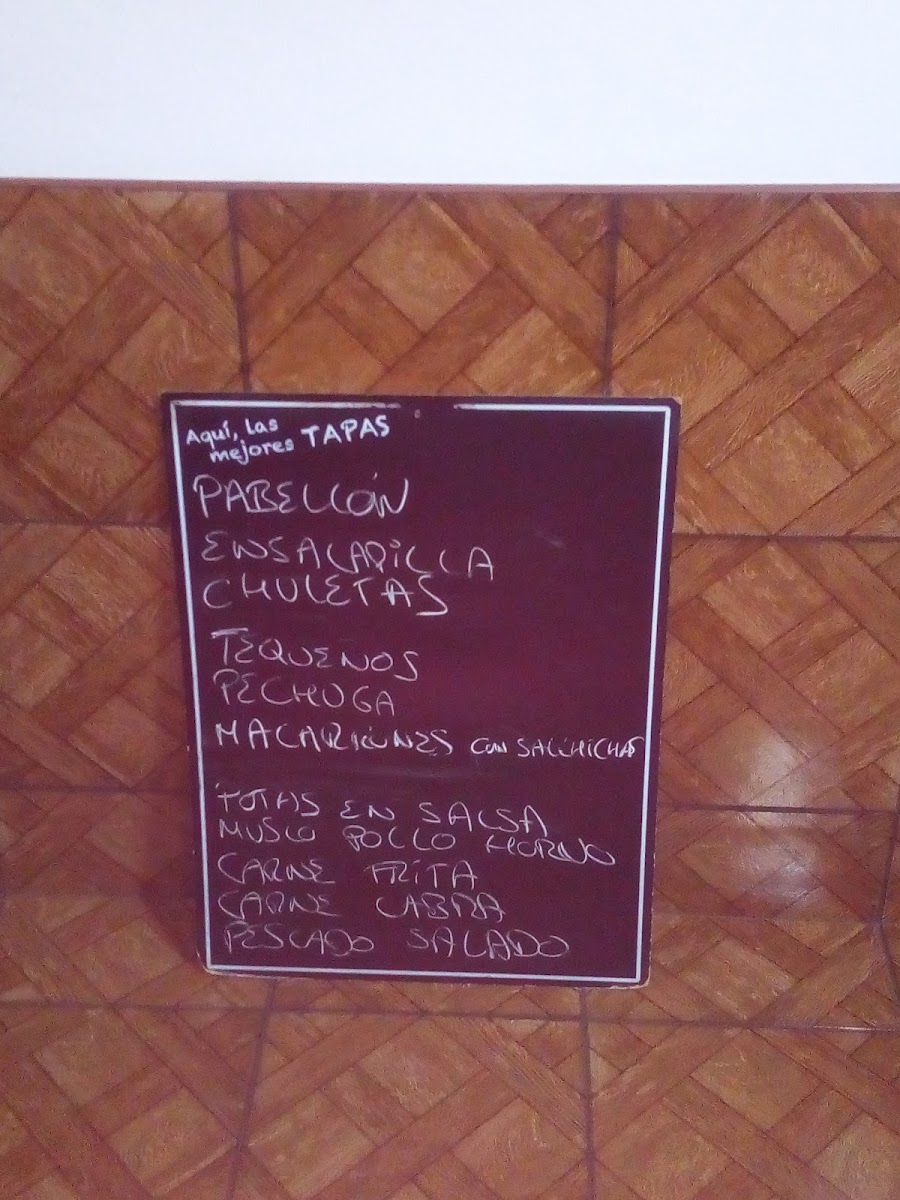 Aquí, las
mejores TAPAS
PABELLÓN
ENSALADILLA
CHULETAS
TEQUEÑOS
PECHUGA
MACARRONES CON SALCHICHAS
EN SALSA
MUSLO POLLO HORNO
CARNE FRITA
CARNE CABRA
PESCADO SALADO